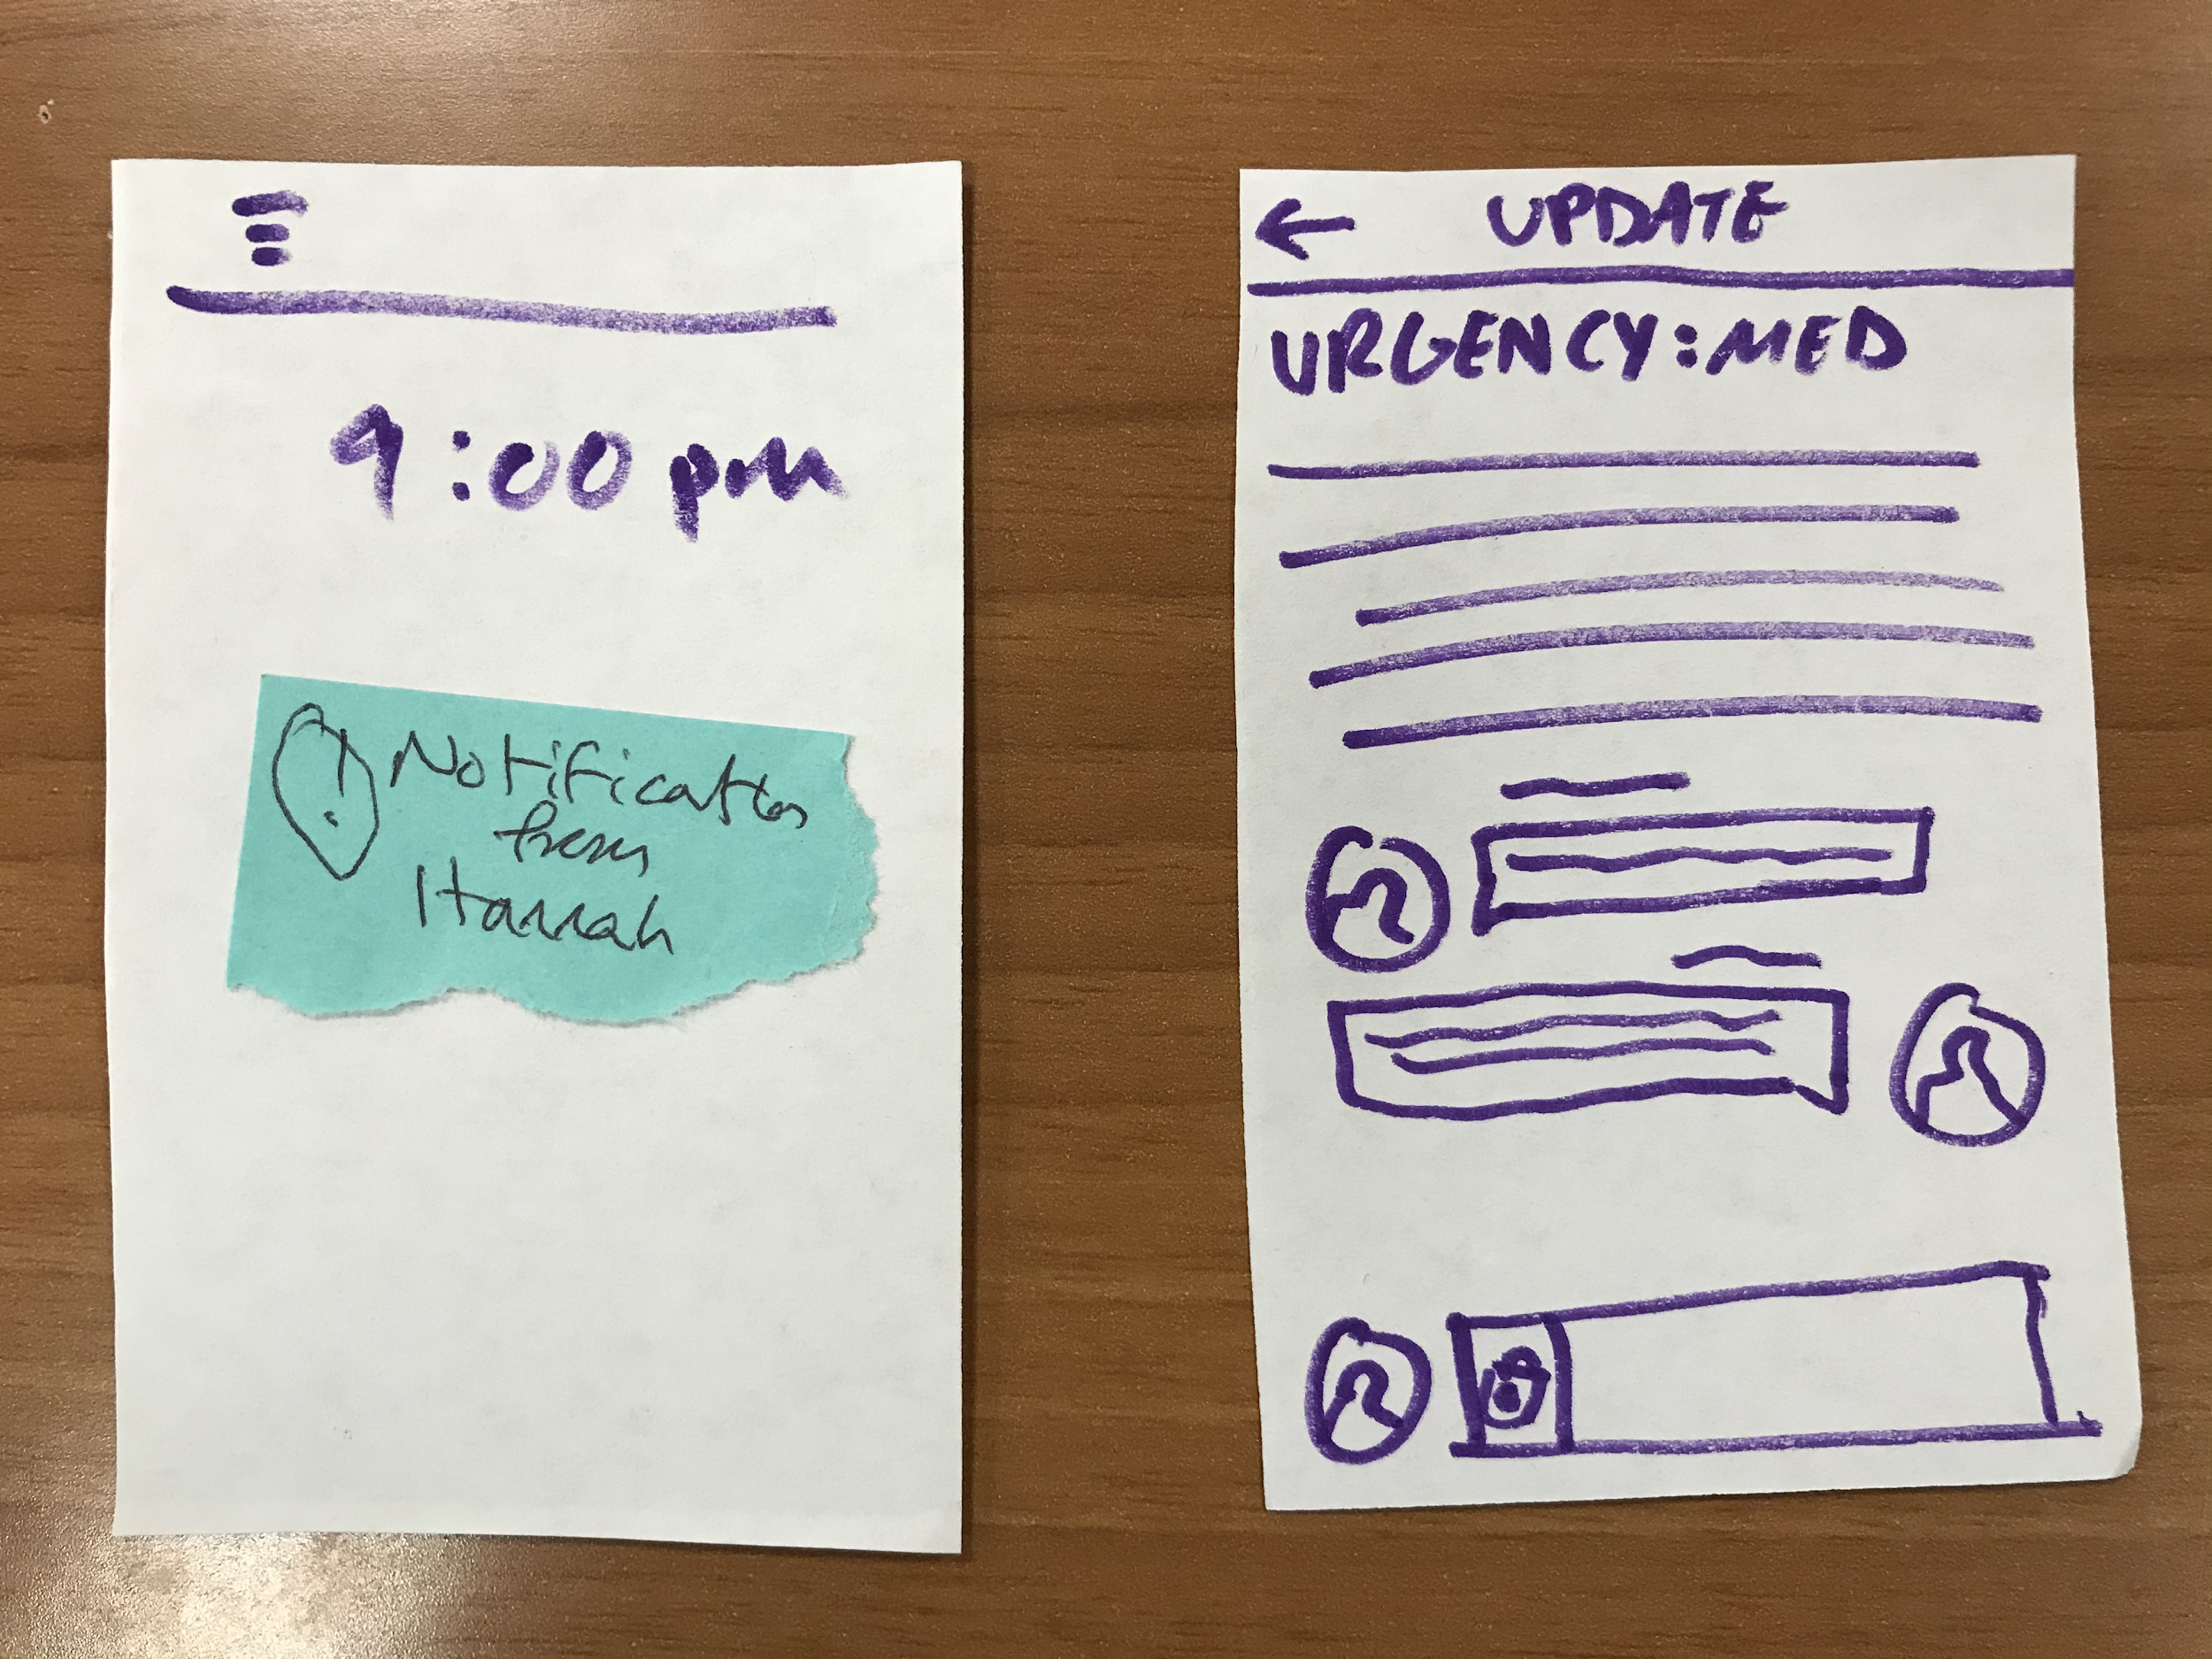 9:00 pm
! Notification
from
Hannah
UPDATE
URGENCY: MED